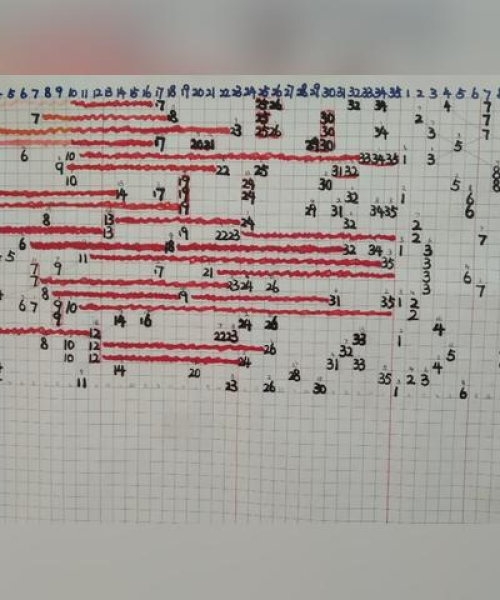 5 6 7 8 9 10 11 12 13 14 15 16 17 18 19 20 21 22 23 24 25 26 27 28 29 30 31 32 33 34 35 1 2 3 4 5 6 7 8
17 25 26 32 34 4 7
7 18 25 30 2 7
23 25 26 30 34 3 7
17 20 21 29 30 5
6 10 33 34 35 1 3
9 22 25 31 32 8
10 19 24 30 5 6 8
14 17 19 24 32 1 6
19 29 31 34 35 6
8 13 24 32 2
13 22 23 2 7
6 18 32 34 1 3
5 11 35 3
7 9 17 21 3 6
7 23 24 26 3 7
8 19 31 35 1 2
6 7 9 10 2
9 14 16 24 26 4
12 22 23 33 1
8 10 12 26 32 5
10 12 24 31 33 4
14 20 28 35 2 3
11 23 26 30 1 6